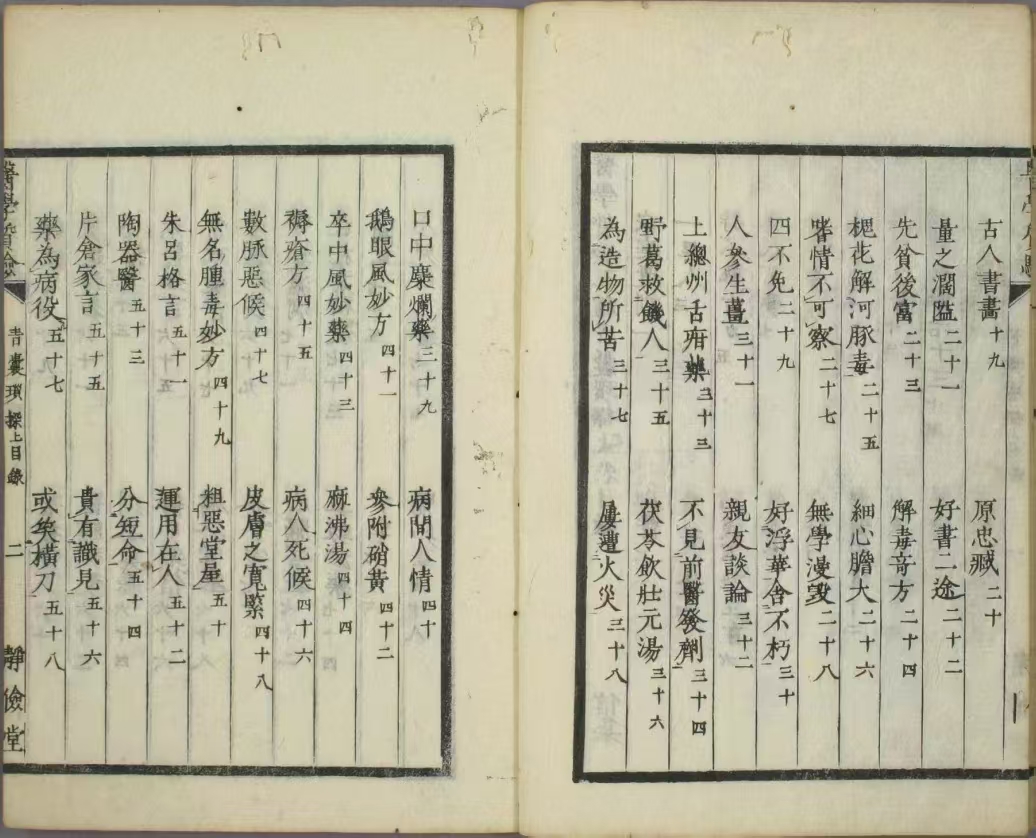 古人書畫十九
原忠臧二十
量之濶隘二十一
好書二途二十二
先貧後富二十三
解毒竒方二十四
槐花解河豚毒二十五
細心膽大二十六
嗜情不可察二十七
無學漫毀二十八
四不免二十九
好浮華舍不朽三十
人參生薑三十一
親友談論三十二
上總州舌疳藥三十三
不見前醫發劑三十四
野葛救饑人三十五
茯苓飲壯元湯三十六
為造物所苦三十七
屢遭火災三十八
口中糜爛藥三十九
病閒人情四十
鵝眼風妙方四十一
參附硝黃四十二
卒中風妙藥四十三
麻沸湯四十四
褥瘡方四十五
病人死候四十六
數脉惡候四十七
皮膚之寬緊四十八
無名腫毒妙方四十九
粗惡堂量五十
朱呂格言五十一
運用在人五十二
陶器醫五十三
分短命五十四
片倉家言五十五
貴有識見五十六
藥為病役五十七
或矣橫刀五十八
醫學質驗
青囊瑣探上目錄
二
靜儉堂